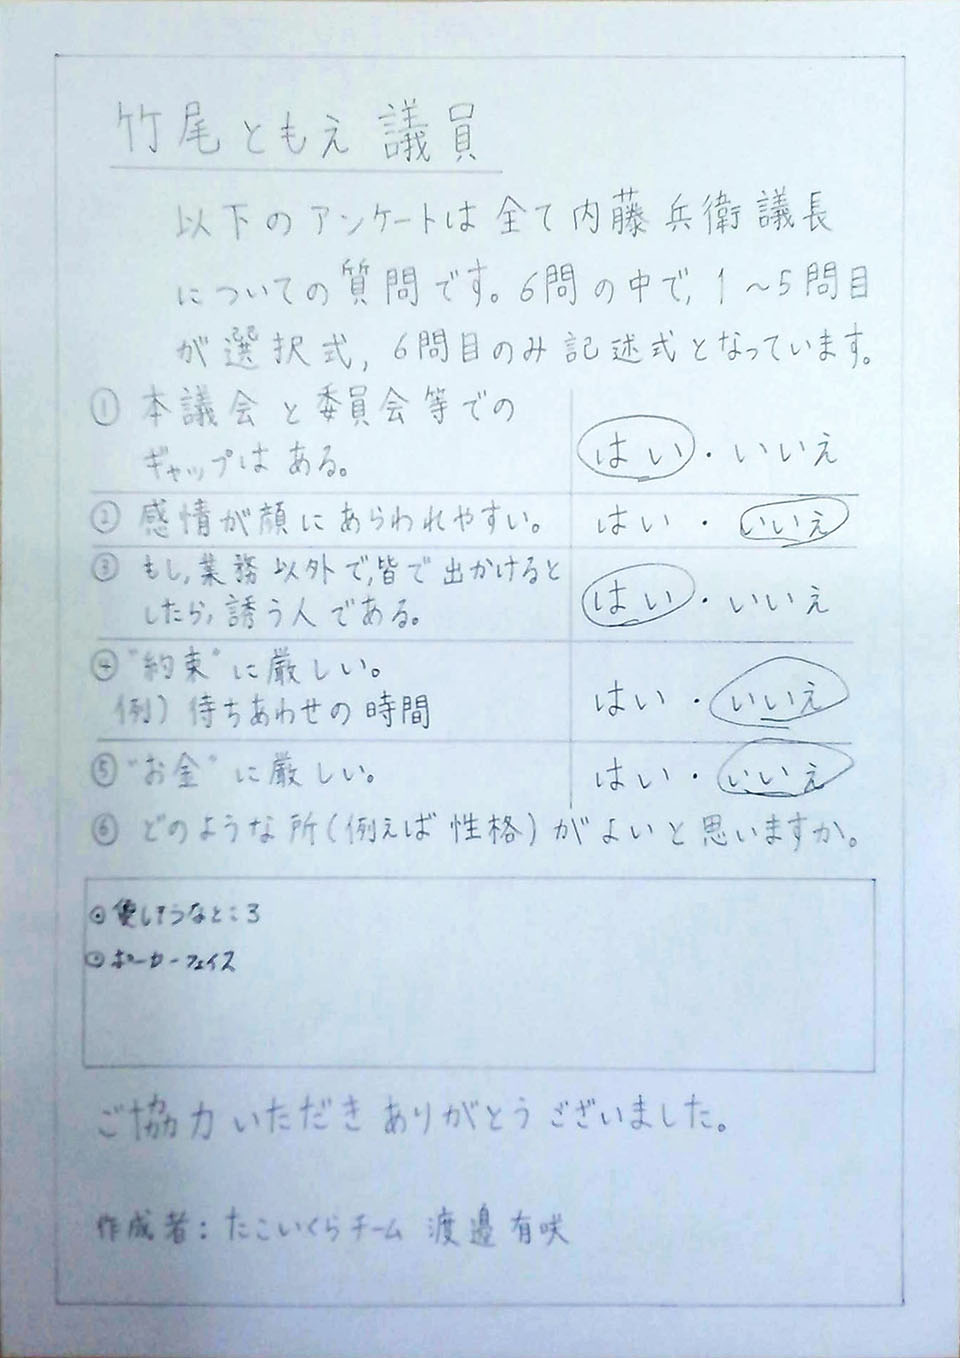 竹尾ともえ 議員
以下のアンケートは全て内藤兵衛議長
についての質問です。6問の中で、1～5問目
が選択式，6問目のみ記述式となっています。
① 本議会と委員会等での
ギャップはある。
はい・いいえ
② 感情が顔にあらわれやすい。
はい・いいえ
③ もし，業務以外で，皆で出かけると
したら，誘う人である。
はい・いいえ
④ "約束"に厳しい。
例）待ちあわせの時間
はい・いいえ
⑤ "お金"に厳しい。
はい・いいえ
⑥ どのような所（例えば性格）がよいと思いますか。
⊙優しそうなところ
⊙ポーカーフェイス
ご協力いただきありがとうございました。
作成者：たこいくらチーム 渡邉有咲